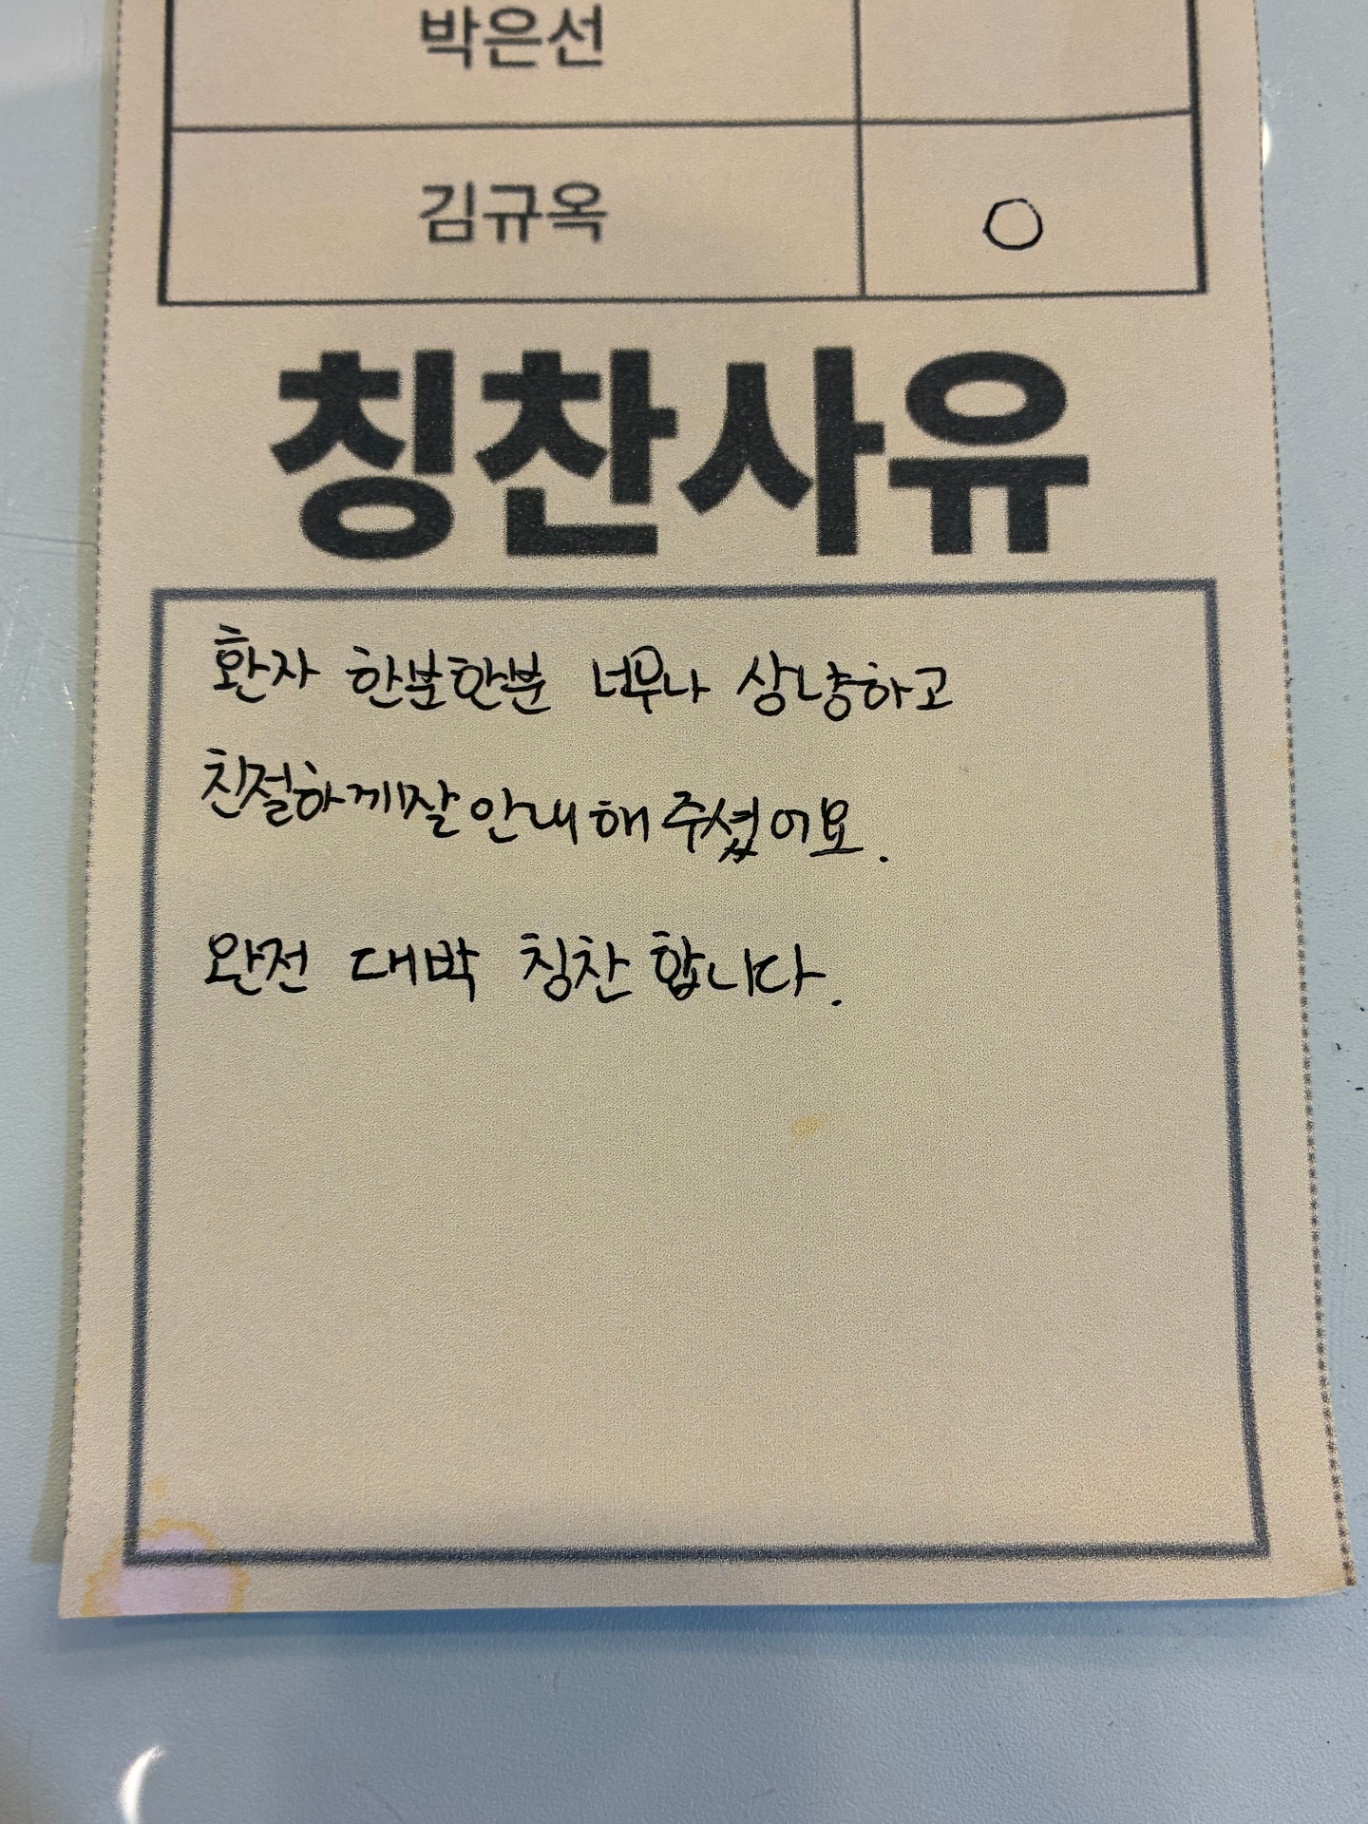 박은선
김규옥 ○
칭찬사유
환자 한분한분 너무나 상냥하고
친절하게잘 안내해 주셨어요.
완전 대박 칭찬합니다.